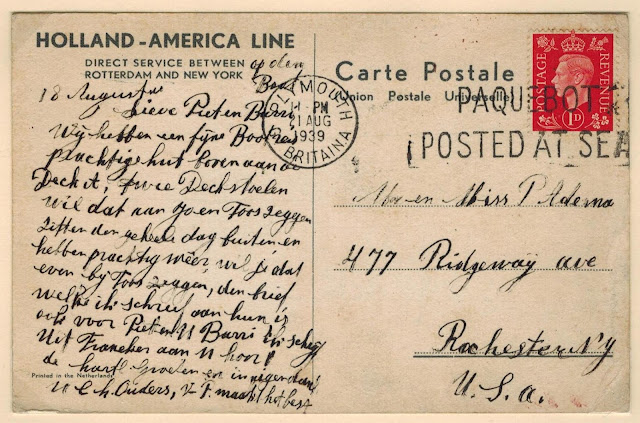 HOLLAND-AMERICA LINE
DIRECT SERVICE BETWEEN
ROTTERDAM AND NEW YORK
op den
Boot
18 Augustus
Lieve Piet en Barri
Wij hebben een fijne Bootreis
prachtige hut boven aan de
Deck it, twee Deckstoelen
wil dat aan Jo en Toos zeggen
zitten den geheele dag buiten en
hebben prachtig weer, wil je dat
even bij Toos zeggen, den brief
welke ik schreef aan hun is
ook voor Piet en U Barri ik schrijf
Uit Franeker aan U hoor!
de hart Groeten en
U l. h. Ouders, v P. maakt het best
Printed in the Netherlands
Carte Postale
(Union Postale Universelle)
PLYMOUTH
11-PM
21 AUG
1939
BRITAIN A
POSTAGE
REVENUE
1D
PAQUEBOT
POSTED AT SEA
Mr en Miss P Adema
477 Ridgeway ave
Rochester N'y
U.S.a.